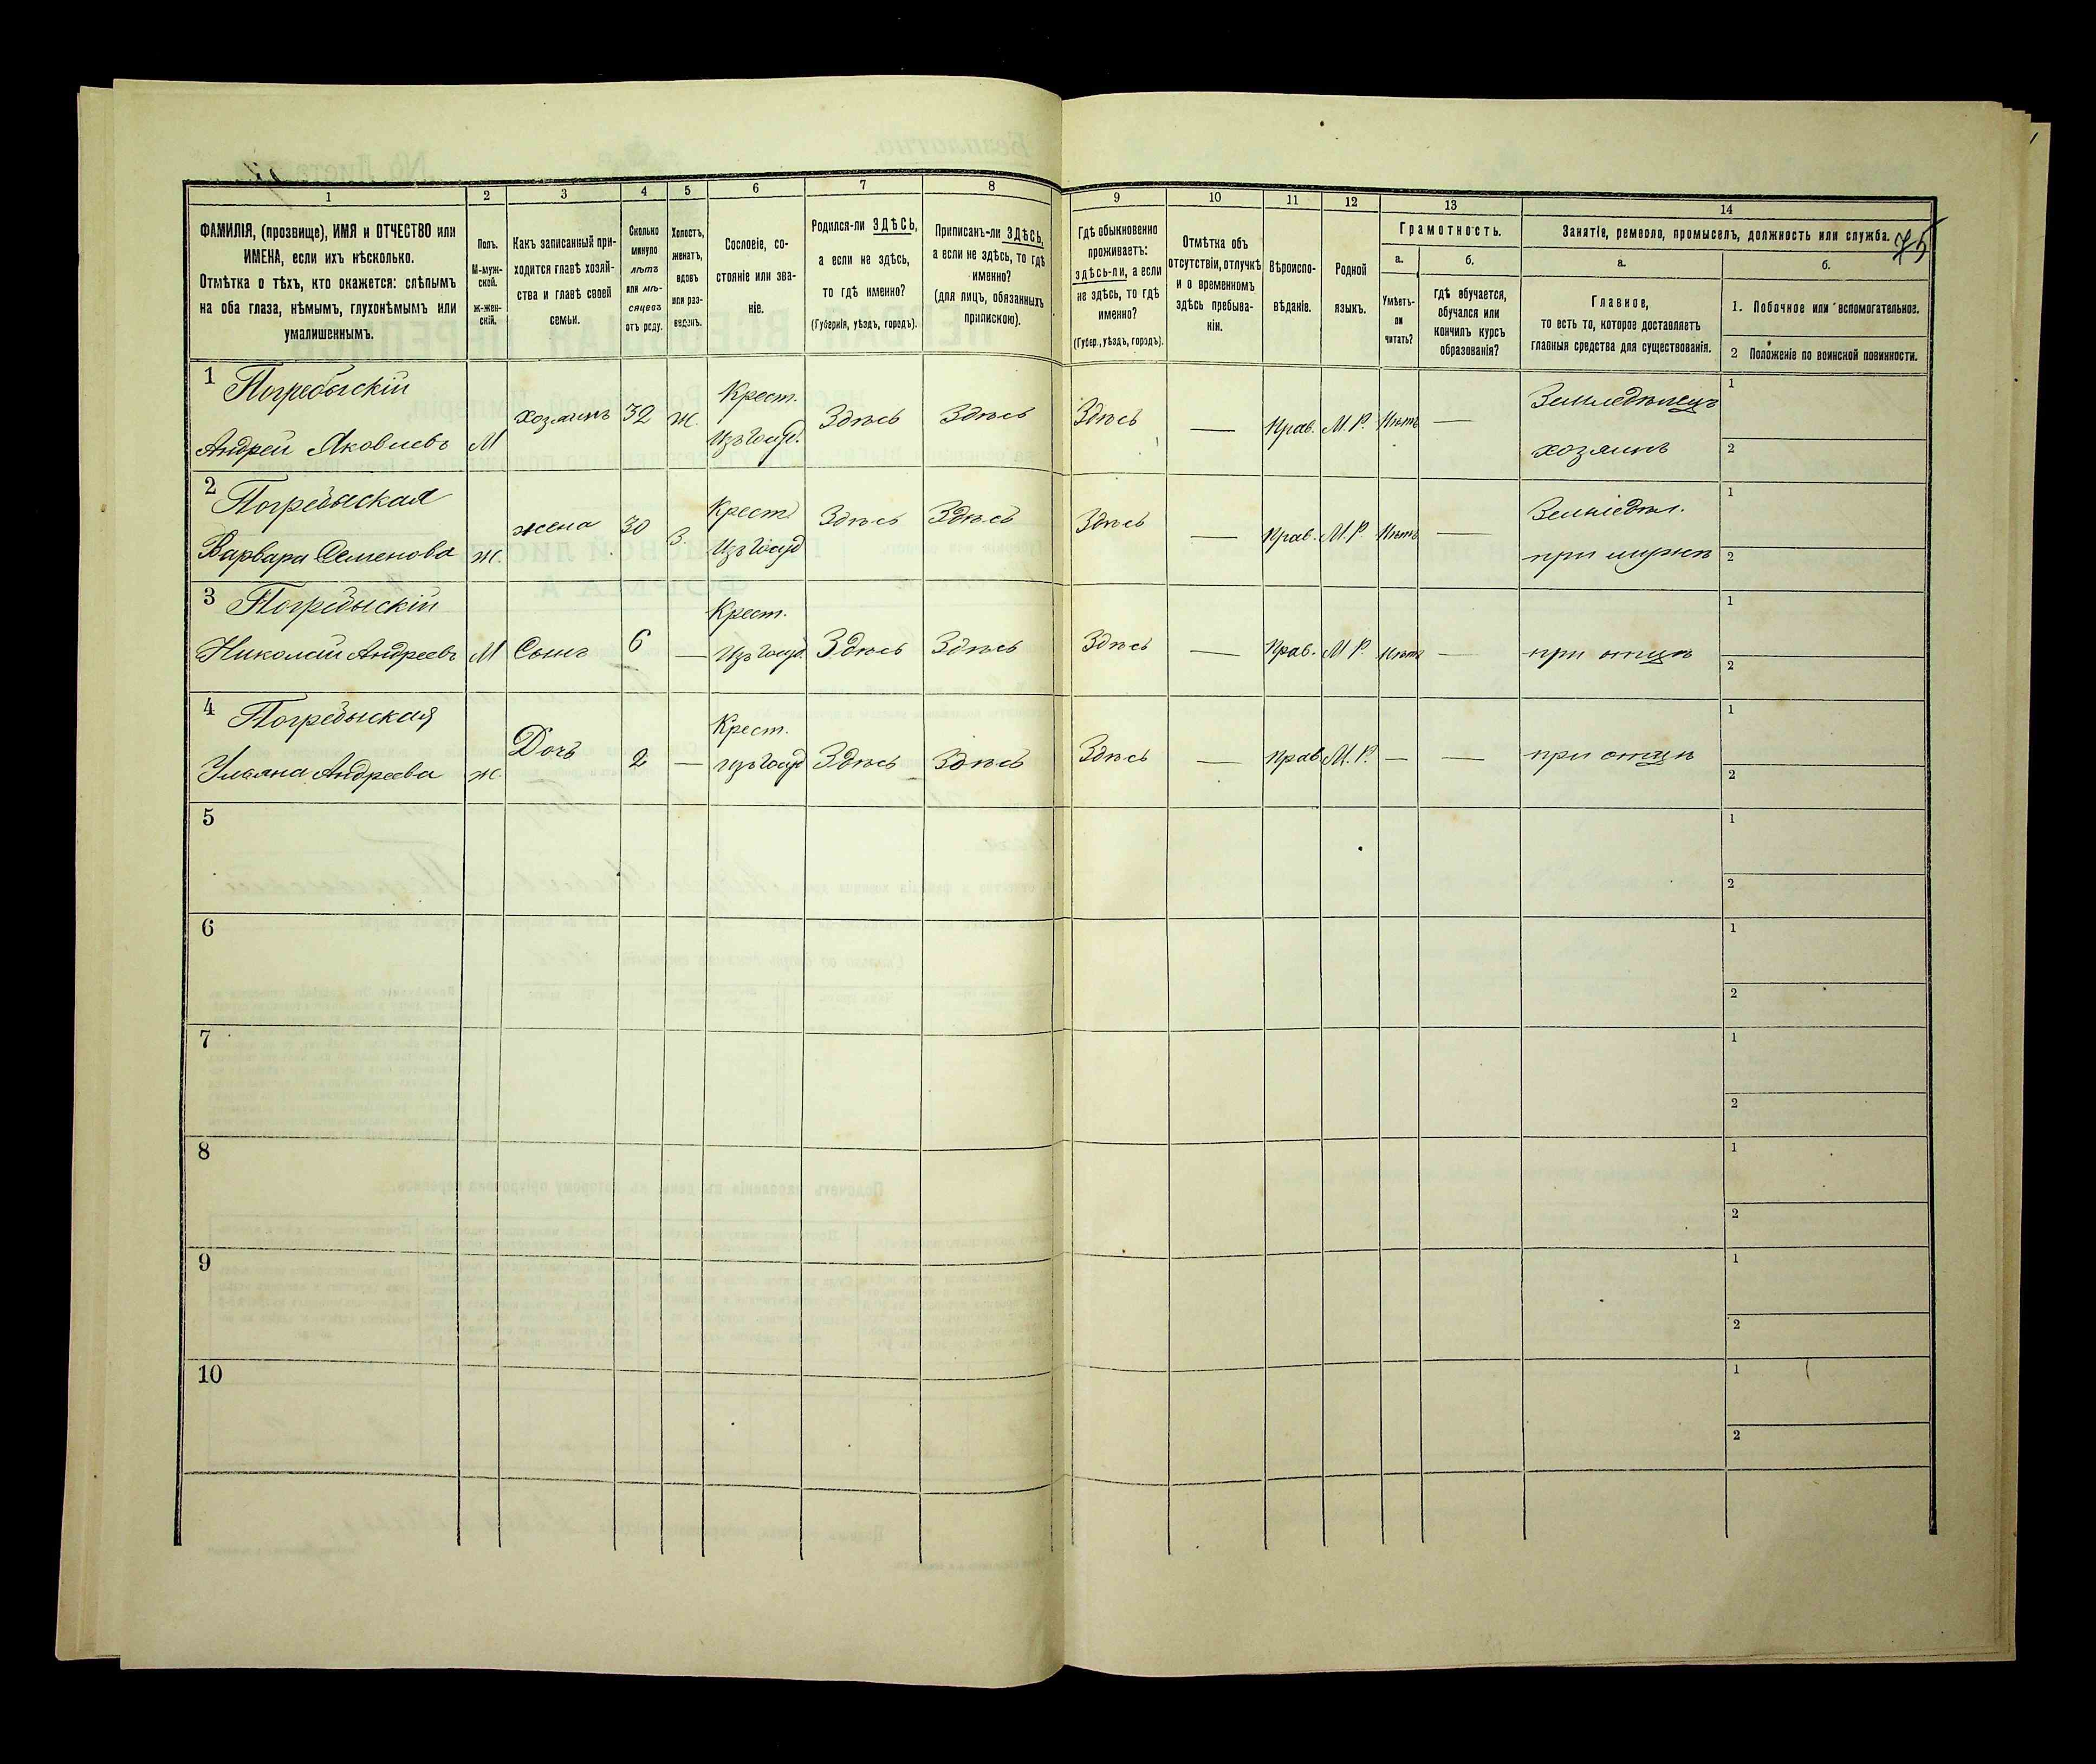 1 2 3 4 5 6 7 8 9 10 11 12 13 14
ФАМИЛІЯ, (прозвище), ИМЯ и ОТЧЕСТВО или
ИМЕНА, если ихъ нѣсколько.
Отмѣтка о тѣхъ, кто окажется: слѣпымъ
на оба глаза, нѣмымъ, глухонѣмымъ или
умалишеннымъ.
Полъ.
М-муж-
ской.
ж-жен-
скій.
Какъ записанный при-
ходится главѣ хозяй-
ства и главѣ своей
семьи.
Сколько
минуло
лѣтъ
или мѣ-
сяцевъ
отъ роду.
Холостъ,
женатъ,
вдовъ
или раз-
веденъ.
Сословіе, со-
стояніе или зва-
ніе.
Родился-ли ЗДѢСЬ,
а если не здѣсь,
то гдѣ именно?
(Губернія, уѣздъ, городъ).
Приписанъ-ли ЗДѢСЬ,
а если не здѣсь, то гдѣ
именно?
(для лицъ, обязанныхъ
припискою).
Гдѣ обыкновенно
проживаетъ:
здѣсь-ли, а если
не здѣсь, то гдѣ
именно?
(Губер., уѣздъ, городъ).
Отмѣтка объ
отсутствіи, отлучкѣ
и о временномъ
здѣсь пребыва-
ніи.
Вѣроиспо-
вѣданіе.
Родной
языкъ.
Грамотность.
а.
Умѣетъ-
ли
читать?
б.
гдѣ обучается,
обучался или
кончилъ курсъ
образованія?
Занятіе, ремесло, промыселъ, должность или служба.
75
а.
Главное,
то есть то, которое доставляетъ
главныя средства для существованія.
б.
1. Побочное или вспомогательное.
2 Положеніе по воинской повинности.
1 Погребыскій
Андрей Яковлевъ
М
хозяинъ
32
ж.
Крест.
Здѣсь
Здѣсь
Здѣсь
—
Прав.
М.Р.
Нѣтъ
—
Земледѣлецъ
хозяинъ
1
2
2 Погребыская
Варвара Семенова
ж.
жена
30
З.
Крест.
Здѣсь
Здѣсь
Здѣсь
—
Прав.
М.Р.
Нѣтъ
—
Земледѣл.
при мужѣ
1
2
3 Погребыскій
Николай Андреевъ
М
Сынъ
6
—
Крест.
Здѣсь
Здѣсь
Здѣсь
—
Прав.
М.Р.
Нѣтъ
—
при отцѣ
1
2
4 Погребыская
Ульяна Андреева
ж.
Дочь
2
—
Крест.
Здѣсь
Здѣсь
Здѣсь
—
Прав
М.Р.
—
—
при отцѣ
1
2
5
1
2
6
1
2
7
1
2
8
1
2
9
1
2
10
1
2